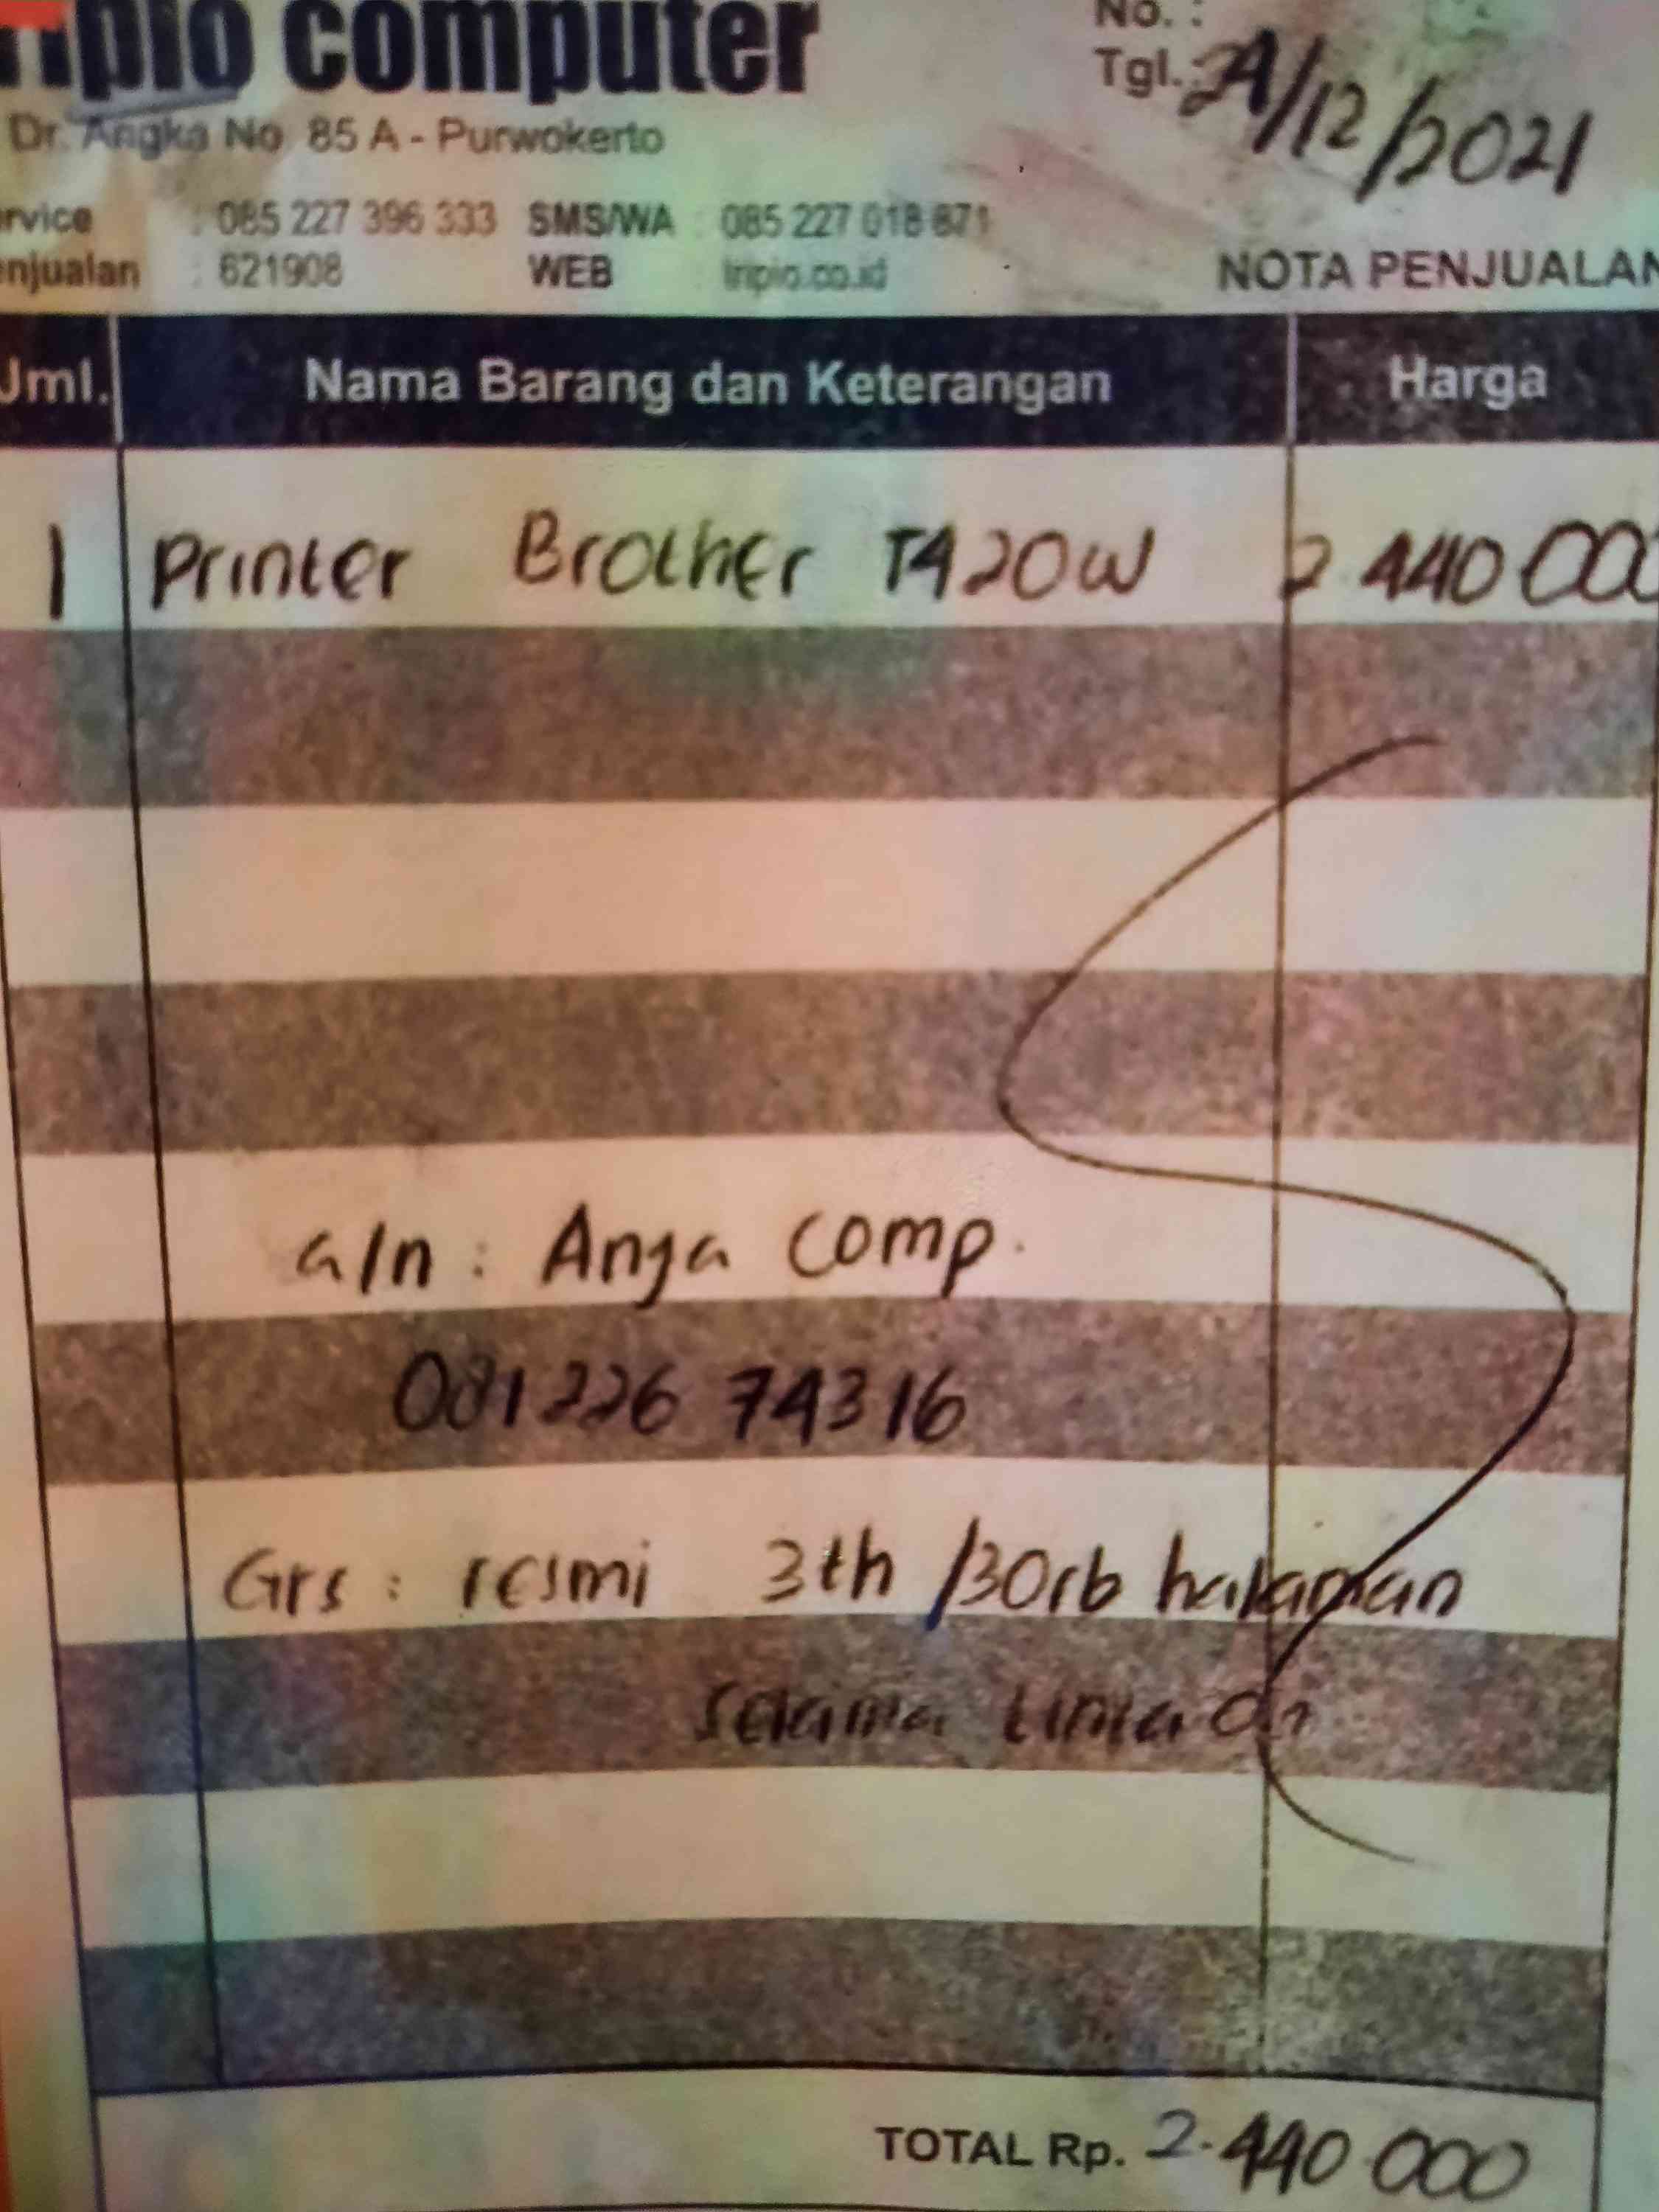 riplo computer
No. :
Tgl.: 24/12/2021
Dr. Angka No 85 A - Purwokerto
rvice : 085 227 396 333 SMS/WA : 085 227 018 871
enjualan : 621908 WEB : triplo.co.id
NOTA PENJUALAN
Jml. Nama Barang dan Keterangan Harga
1 Printer Brother T420W 2.440.000
a/n : Anya comp.
081226 74316
Grs : resmi 3th /30rb halaman
selama tinta ori
TOTAL Rp. 2.440.000